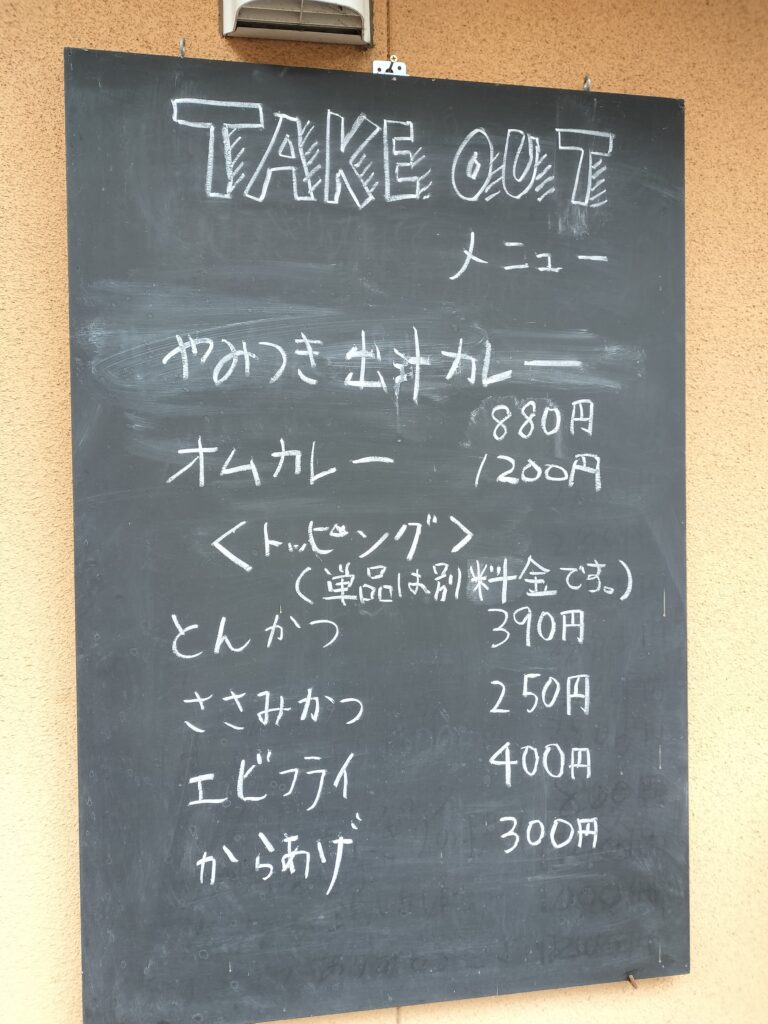 TAKE OUT
メニュー
やみつき出汁カレー
880円
オムカレー 1200円
<トッピング>
(単品は別料金です。)
とんかつ 390円
ささみかつ 250円
エビフライ 400円
からあげ 300円